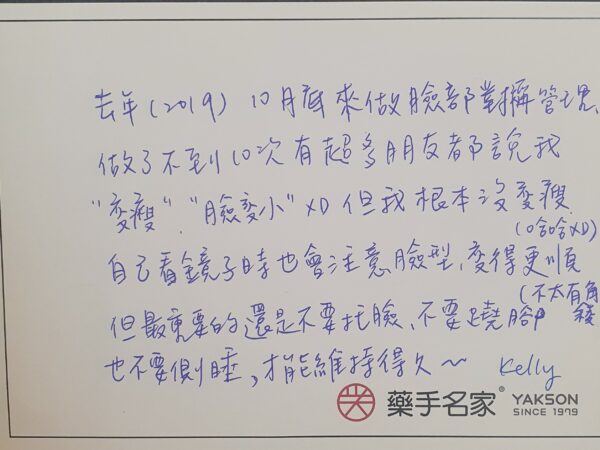 去年(2019) 10月底來做臉部對稱管理、
做了不到10次有超多朋友都說我
"變瘦"、"臉變小"XD 但我根本沒變瘦
(哈哈XD)
自己看鏡子時也會注意臉型、變得更順
(不太有角
但最重要的還是不要托臉、不要翹腳
也不要側睡,才能維持得久~ Kelly
藥手名家® YAKSON
SINCE 1979